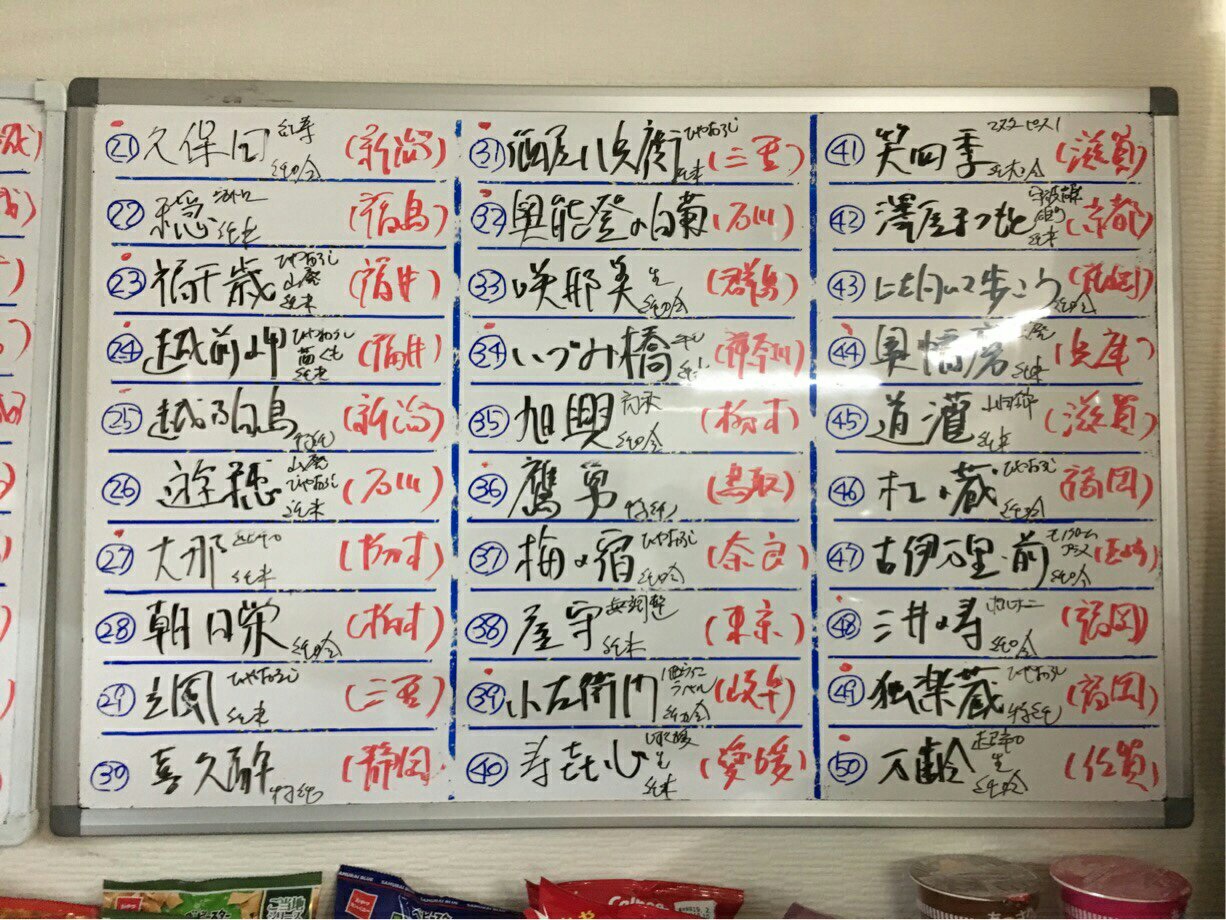 ㉑ 久保田 紅寿 純吟 (新潟)
㉒ 穏 純米 (福島)
㉓ 福千歳 ひやおろし 山廃 純米 (福井)
㉔ 越前岬 ひやおろし 純米 (福井)
㉕ 越乃白鳥 特純 (新潟)
㉖ 遊穂 山廃 ひやおろし 純米 (石川)
㉗ 大那 超辛口 純米 (栃木)
㉘ 朝日栄 純吟 (栃木)
㉙ ひやおろし 純米 (三重)
㉚ 喜久酔 特純 (静岡)
㉛ 酒屋八兵衛 ひやおろし 純米 (三重)
㉜ 奥能登の白菊 (石川)
㉝ 咲耶美 生 純吟 (群馬)
㉞ いづみ橋 純米 (神奈川)
㉟ 旭興 純吟 (栃木)
㊱ 鷹勇 特純 (鳥取)
㊲ 梅の宿 ひやおろし 純吟 (奈良)
㊳ 屋守 無調整 純米 (東京)
㊴ 小左衛門 純吟 (岐阜)
㊵ 寿喜心 生 純米 (愛媛)
㊶ 笑四季 マスターピース 純吟 (滋賀)
㊷ 澤屋まつもと 守破離 純米 (京都)
㊸ 上を向いて歩こう 純吟
㊹ 奥播磨 純米 (兵庫)
㊺ 道灌 山田錦 純米 (滋賀)
㊻ 杜の蔵 ひやおろし 純吟 (福岡)
㊼ 古伊万里 前 純吟
㊽ 三井の寿 純吟 (福岡)
㊾ 独楽蔵 ひやおろし 特純 (福岡)
㊿ 万齢 超辛口 生 純吟 (佐賀)
SAMURAI BLUE
Calbee
ベビースター
ご当地
シリーズ
ベビースター